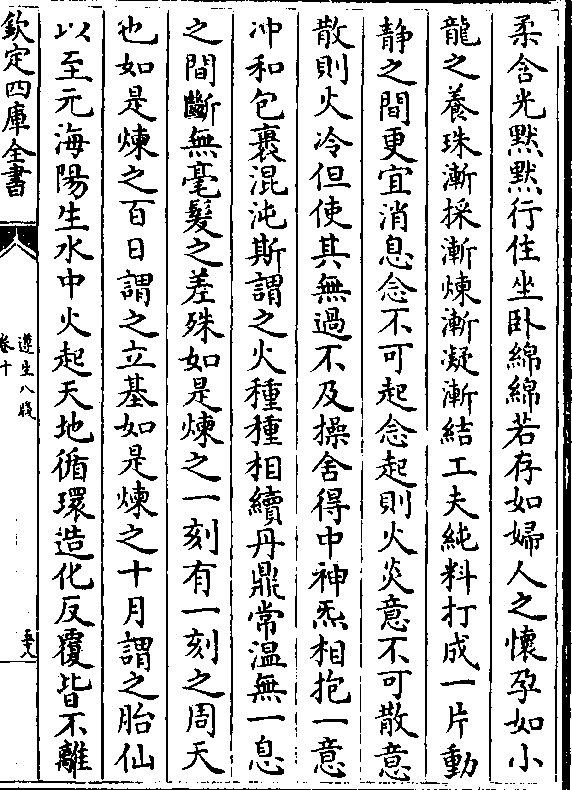 柔含光黙黙行住坐卧綿綿若存如婦人之懐孕如小
龍之養珠漸採漸煉漸凝漸結工夫純料打成一片動
静之間更宜消息念不可起念起則火炎意不可散意
散則火冷但使其無過不及操舍得中神炁相抱一意
冲和包裹混沌斯謂之火種種相續丹鼎常温無一息
之間斷無毫髮之差殊如是煉之一刻有一刻之周天
也如是煉之百日謂之立基如是煉之十月謂之胎仙
以至元海陽生水中火起天地循環造化反覆皆不離
欽定四庫全書
遵生八牋
卷十